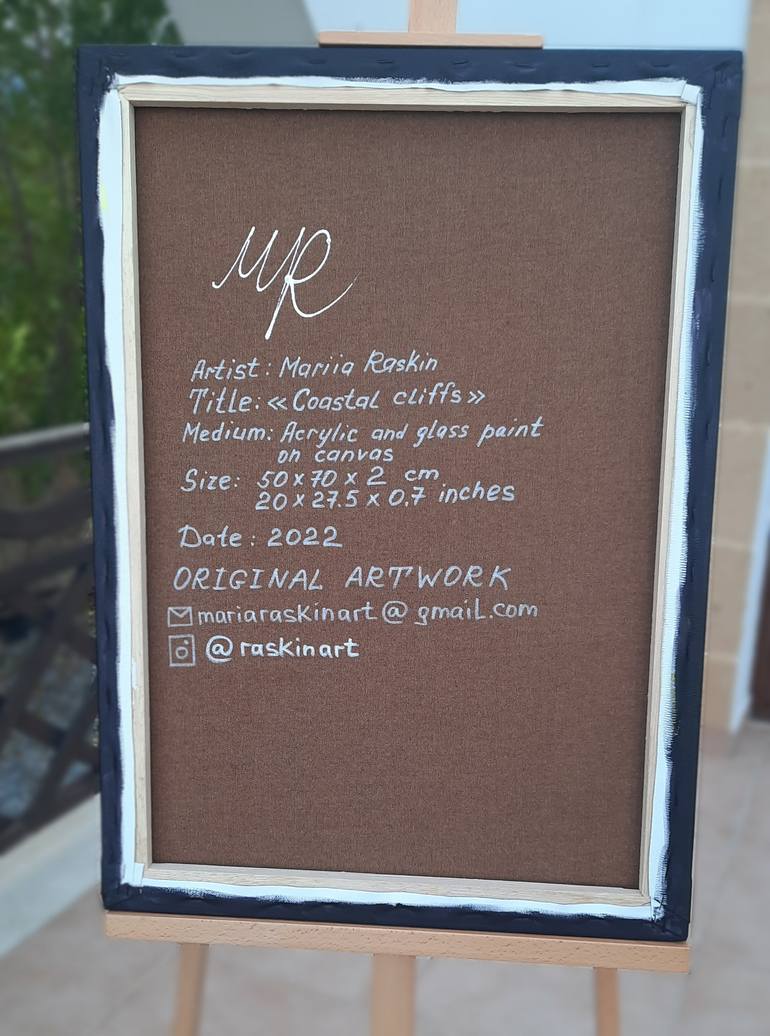 MR
Artist: Mariia Raskin
Title: «Coastal cliffs»
Medium: Acrylic and glass paint
on canvas
Size: 50x70 x 2 cm
20 x 27.5 x 0,7 inches
Date: 2022
ORIGINAL ARTWORK
mariaraskinart@gmail.com
@raskinart